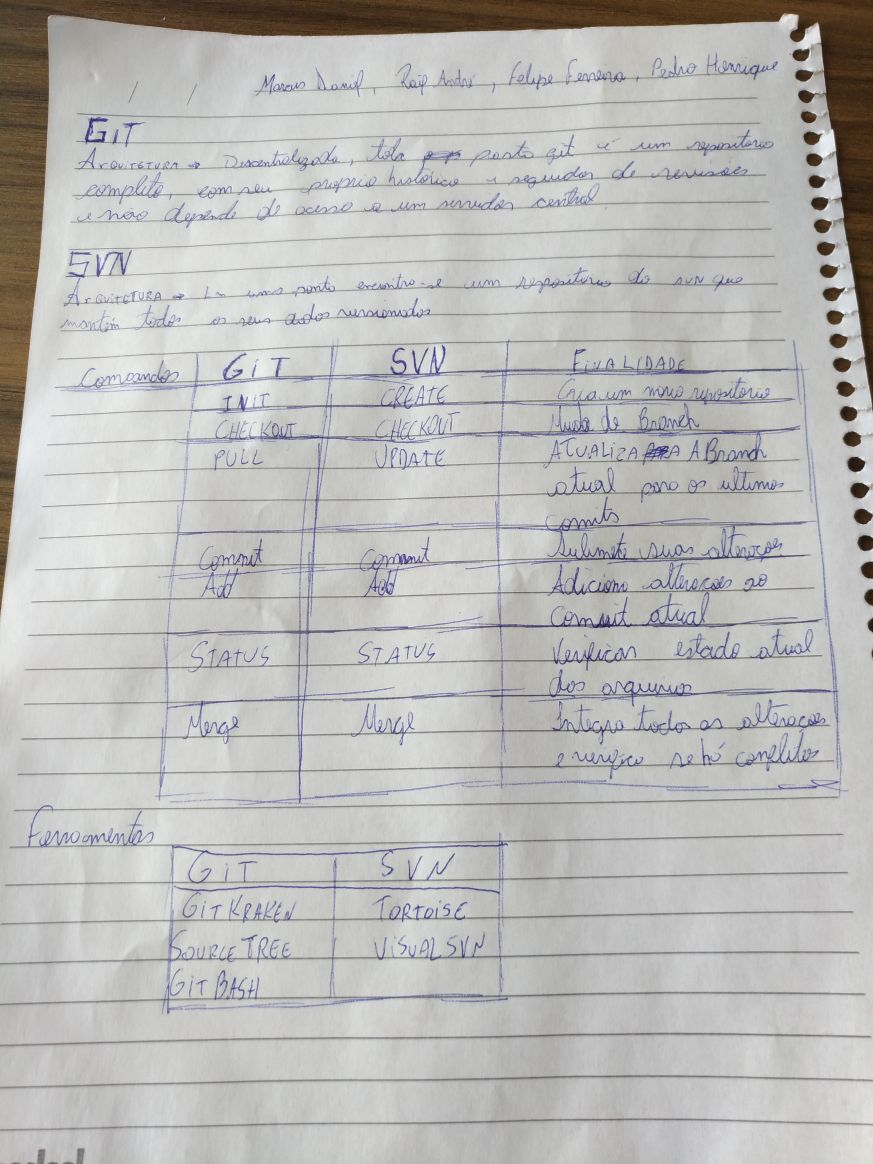 / / Marcus Daniel, Raif André, Felipe Ferreira, Pedro Henrique
GiT
ARQUITETURA → Descentralizado, toda pasta git é um repositorio
completo, com seu proprio histórico e seguidor de revisões
e não depende de acesso a um servidor central.
SVN
ARQUITETURA → Em uma ponto encontra-se um repositorio do SVN que
mantém todos os seus dados versionados
Comandos GiT SVN FiNALiDADE
INIT CREATE Cria um novo repositorio
CHECKOUT CHECKOUT Muda de Branch
PULL UPDATE ATUALIZA A Branch
atual para os ultimos
comits
Commit Commit Submete suas alterações
Add Add Adiciona alterações ao
Commit atual
STATUS STATUS Verificar estado atual
dos arquivos
Merge Merge Integra todas as alterações
e verifica se há conflitos
Ferramentas
GiT SVN
GiTKRAKEN TORTOiSE
SOURCETREE ViSUALSVN
GiT BASH